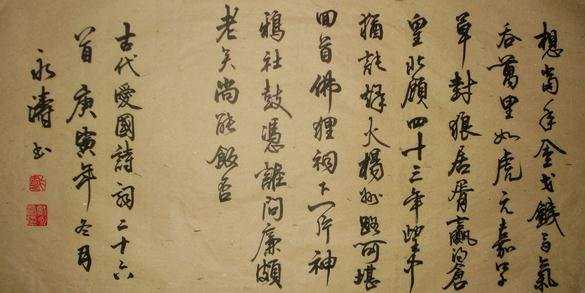 想當年金戈鐵馬氣
吞萬里如虎元嘉草
草封狼居胥贏得倉
皇北顧四十三年望中
猶記烽火揚州路可堪
回首佛狸祠下一片神
鴉社鼓憑誰問廉頗
老矣尚能飯否
古代愛國詩詞二十六
首庚寅年冬月
永濤書